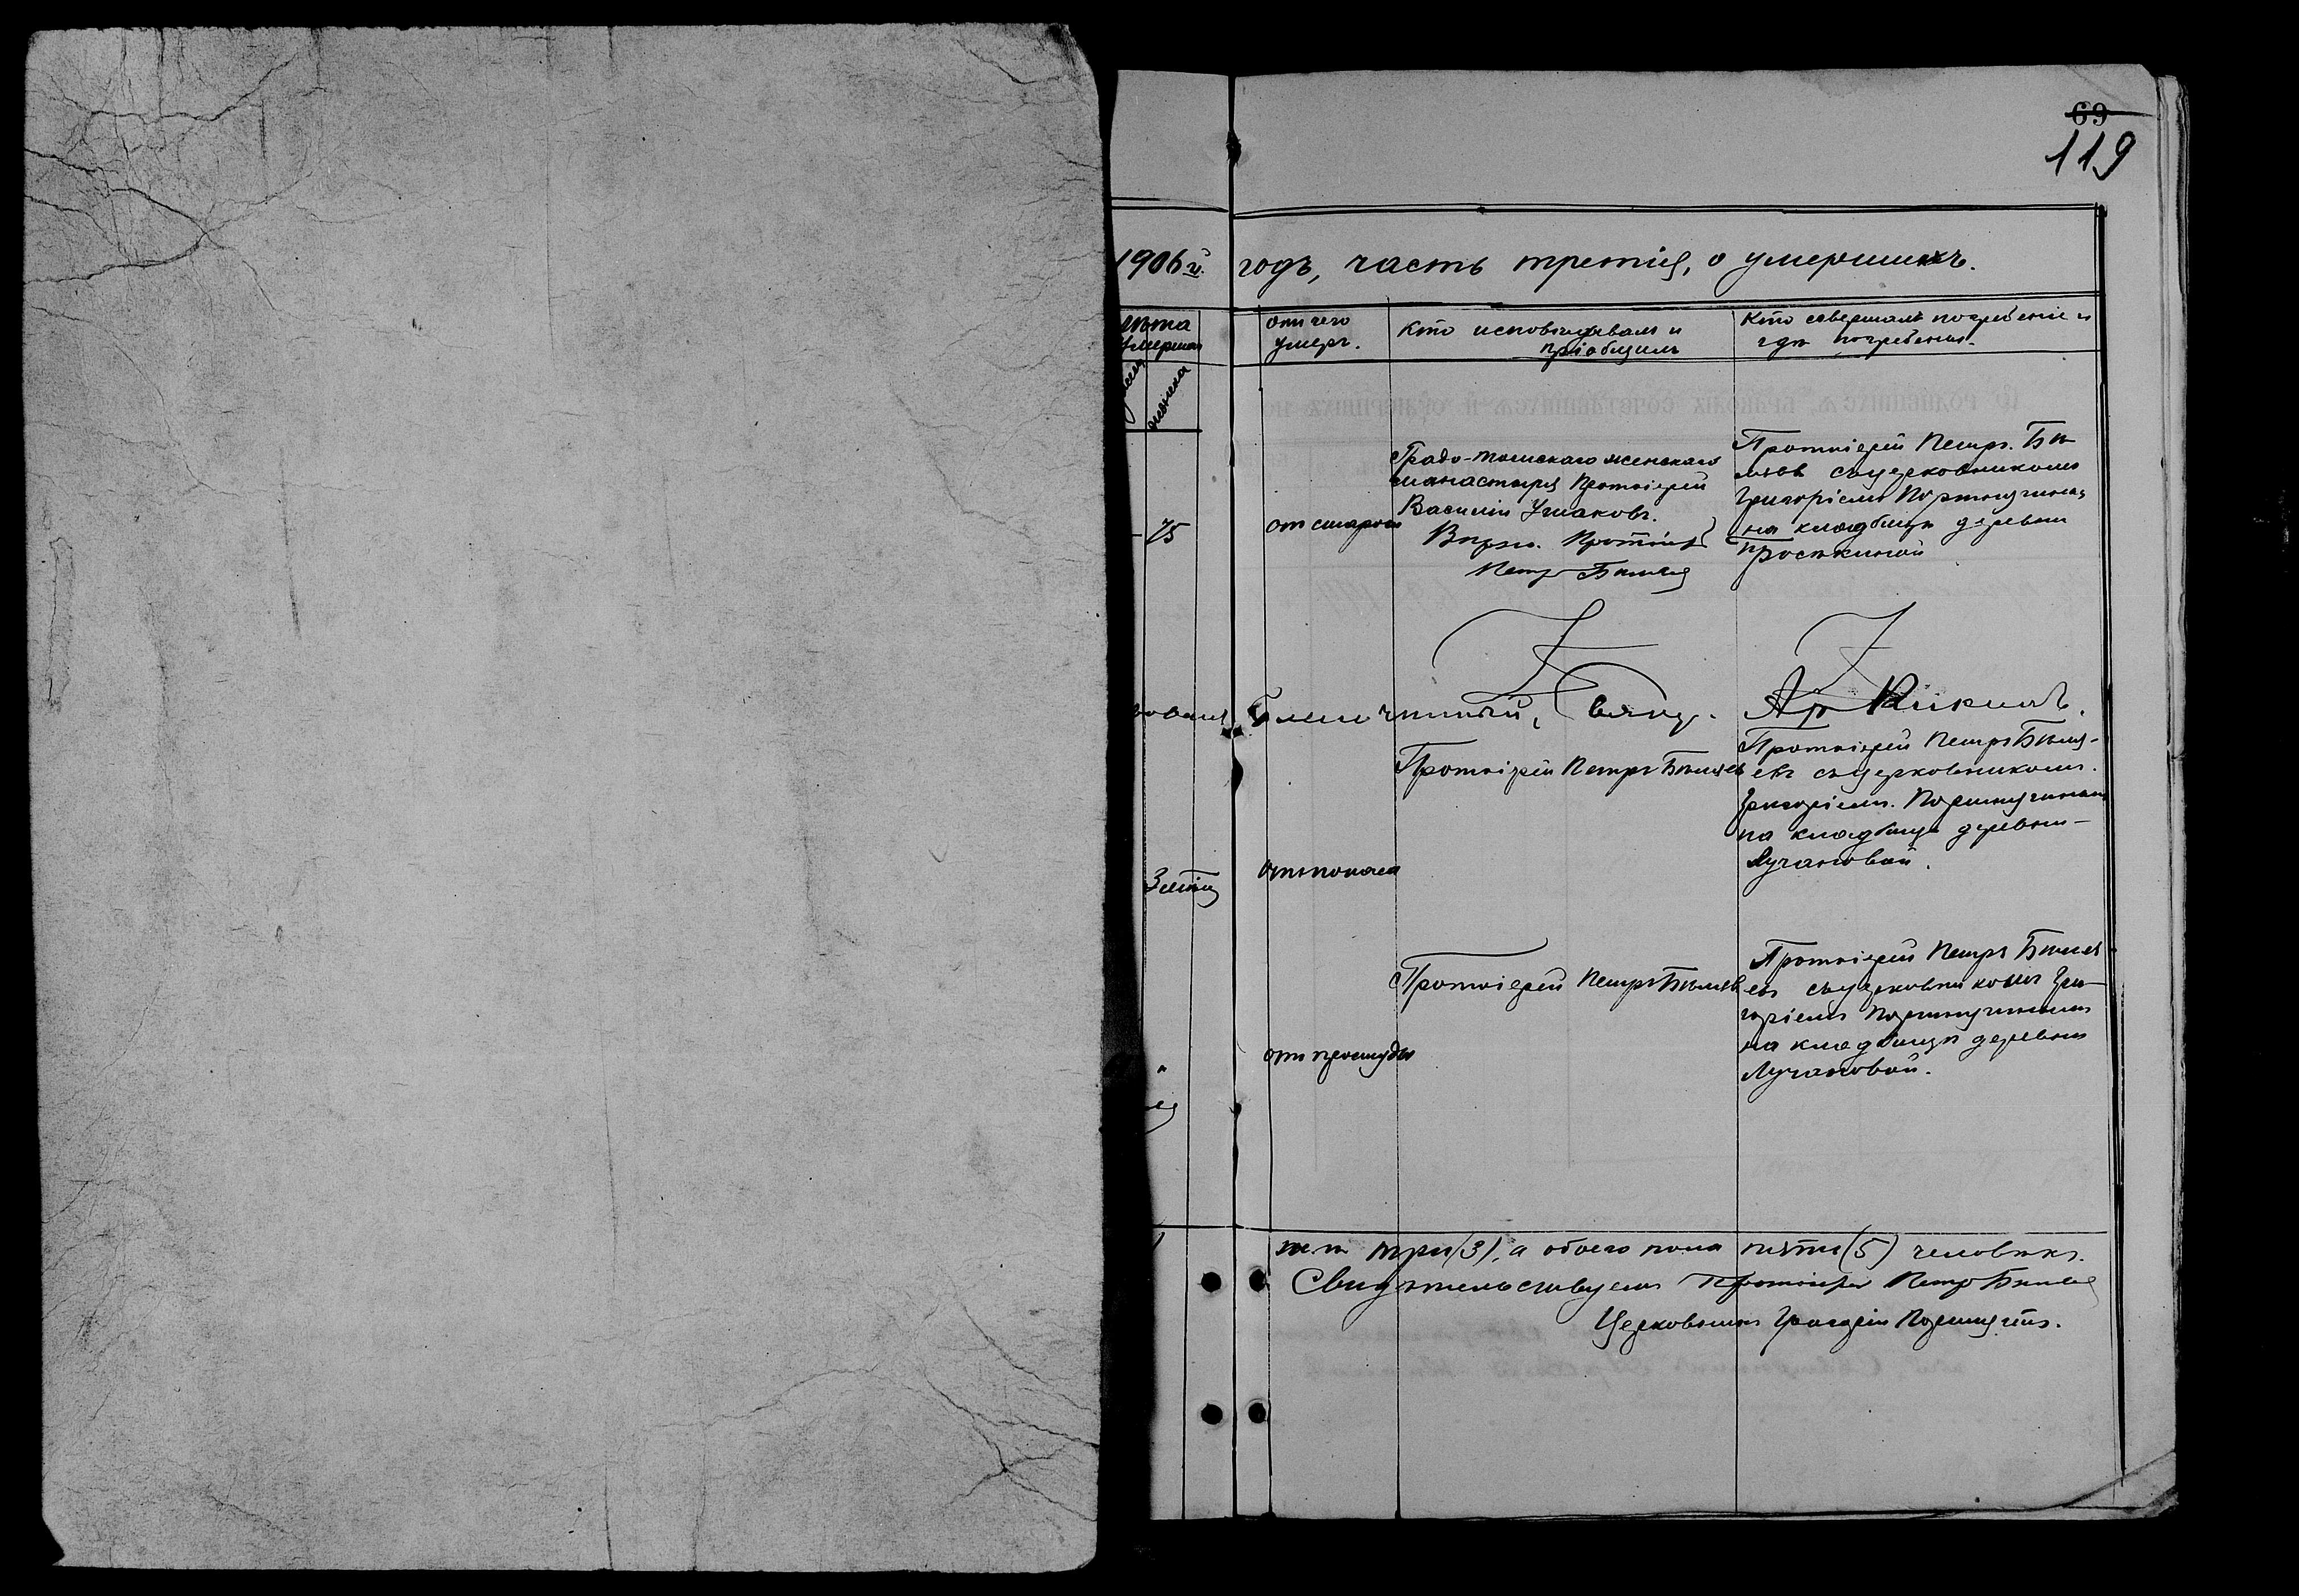 69
119
1906й. годъ, часть третія, о умершихъ.
Лѣта
Умершаго
женска
отъ чего
умеръ.
Кто исповѣдывалъ и
пріобщилъ
Кто совершалъ погребеніе и
гдѣ погребены.
75
отъ старости
Градо-Томскаго женскаго
монастыря Протоіерей
Василій Ушаковъ.
Вѣрно. Протоіерей
Петръ Бѣляевъ
Протоіерей Петръ Бѣ-
ляевъ съ церковникомъ
Григоріемъ
на кладбищѣ деревни
Просѣкиной
Благочинный, Свящ.
Протоіерей Петръ Бѣляевъ
Протоіерей Петръ Бѣля-
евъ съ церковникомъ
Григоріемъ
на кладбищѣ деревни
Лучановой.
3
отъ поноса
Протоіерей Петръ Бѣляевъ
Протоіерей Петръ Бѣля
евъ съ церковникомъ Гри-
горіемъ
на кладбищѣ деревни
Лучановой.
отъ простуды
ж. п. три (3), а обоего пола пять (5) человѣкъ.
Свидѣтельствуемъ Протоіерей Петръ Бѣляевъ
Церковникъ Григорій